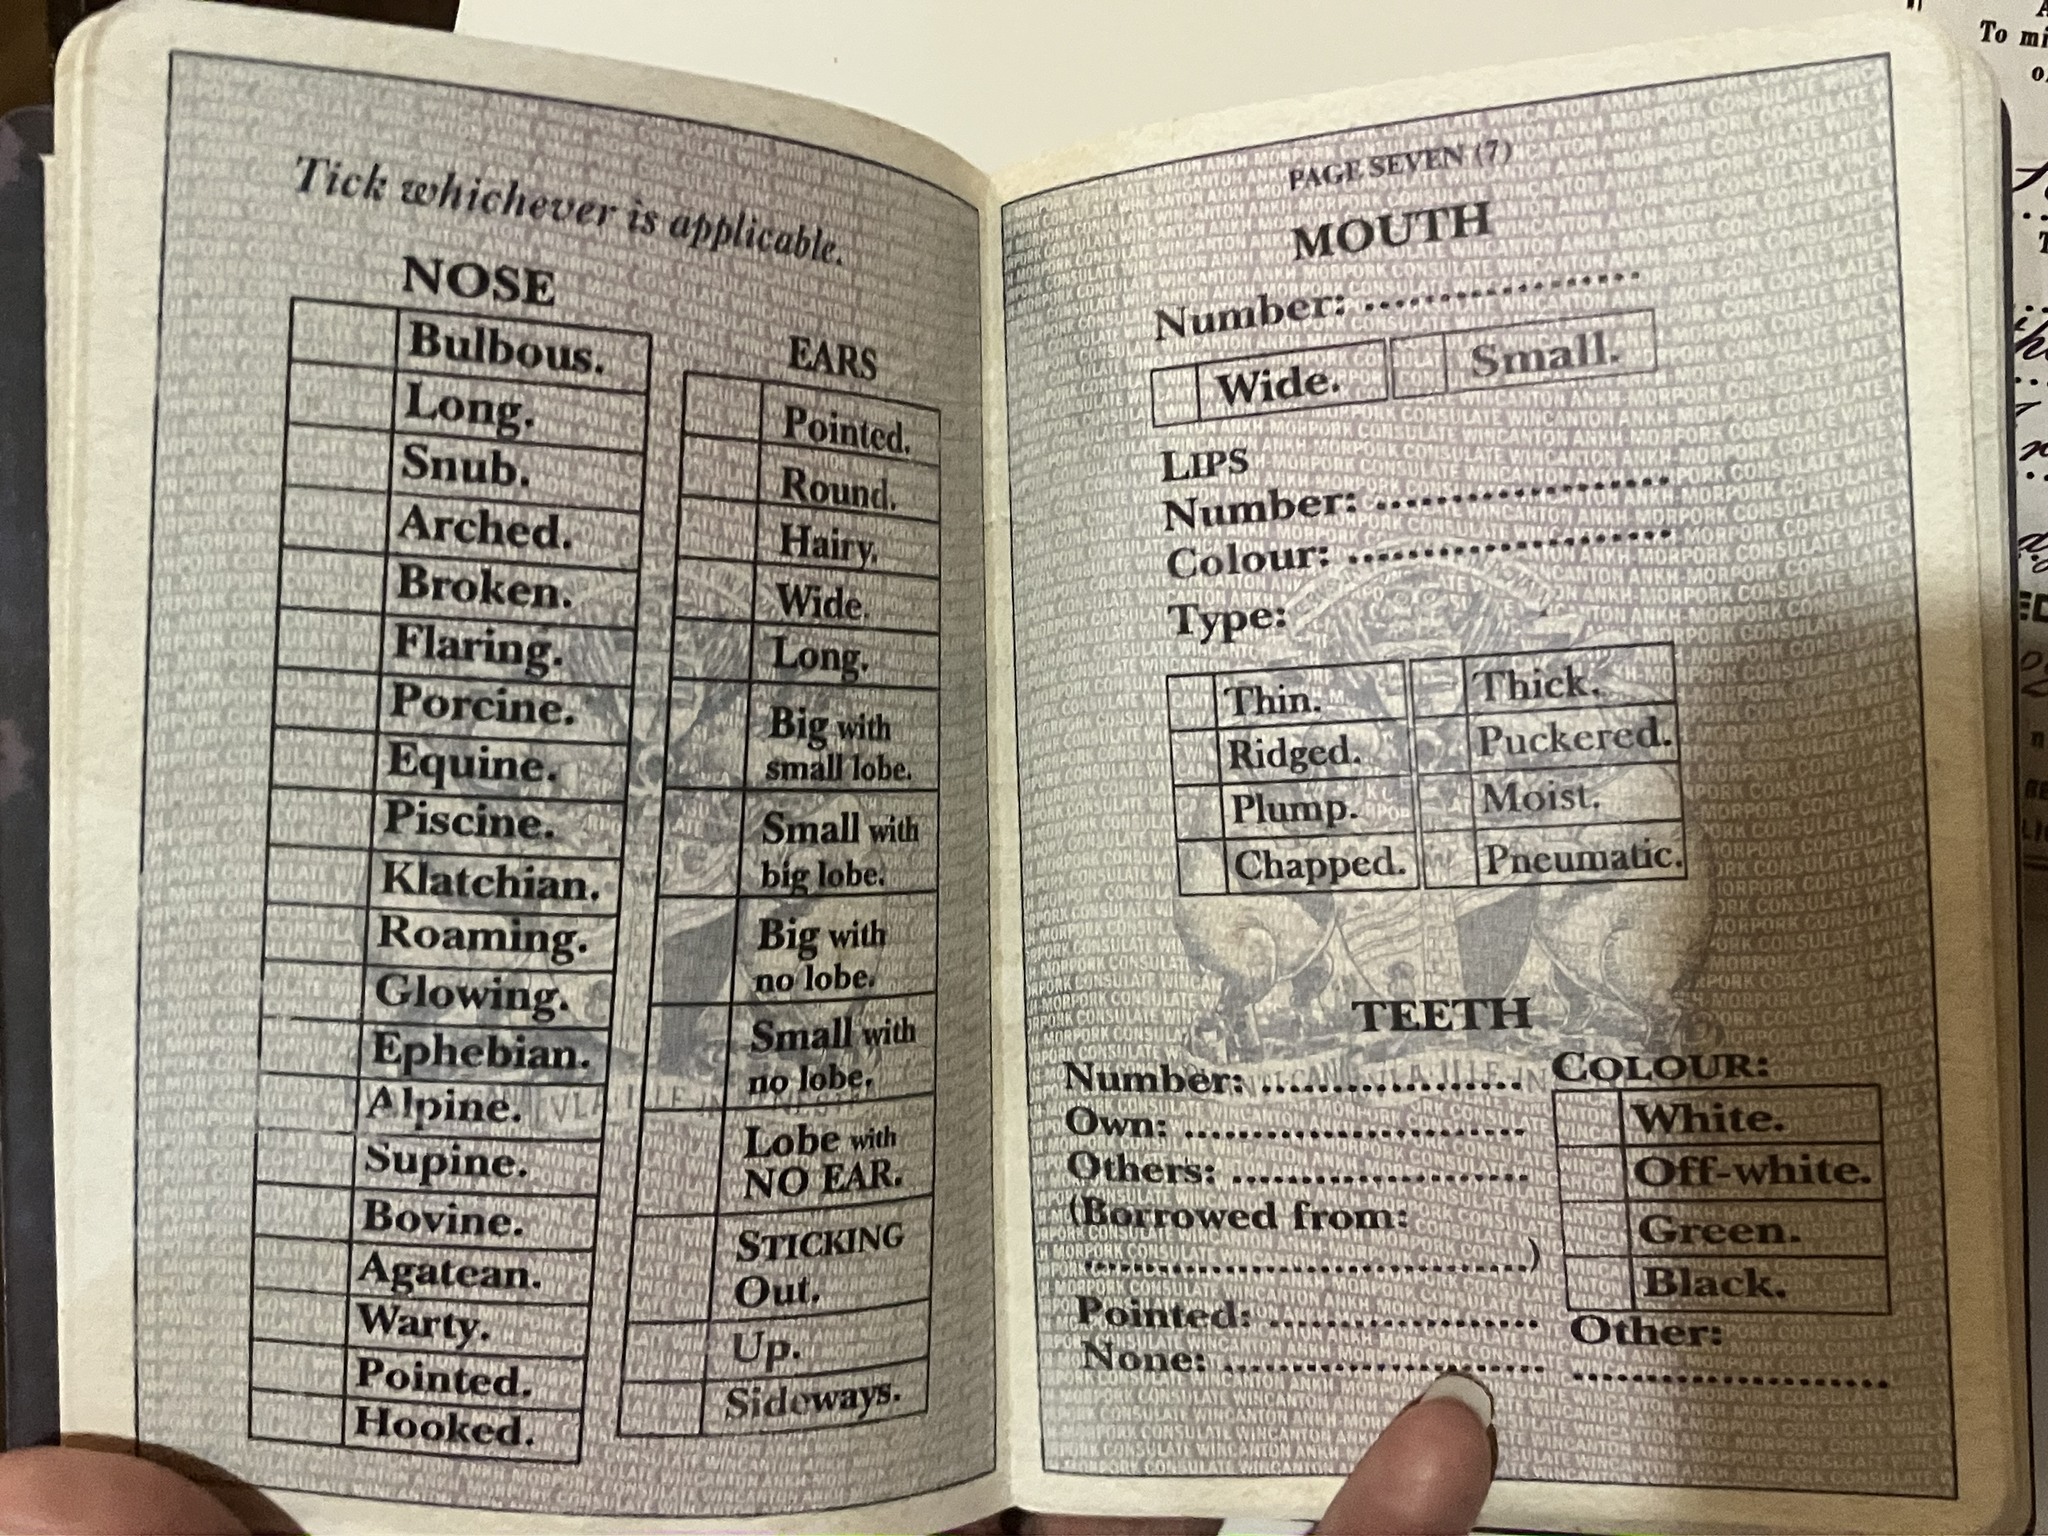 Tick whichever is applicable.
NOSE
Bulbous.
Long.
Snub.
Arched.
Broken.
Flaring.
Porcine.
Equine.
Piscine.
Klatchian.
Roaming.
Glowing.
Ephebian.
Alpine.
Supine.
Bovine.
Agatean.
Warty.
Pointed.
Hooked.
EARS
Pointed.
Round.
Hairy.
Wide.
Long.
Big with
small lobe.
Small with
big lobe.
Big with
no lobe.
Small with
no lobe.
Lobe with
NO EAR.
STICKING
Out.
Up.
Sideways.
PAGE SEVEN (7)
MOUTH
Number: ....................
Wide. Small.
LIPS
Number: ....................
Colour: ....................
Type:
Thin. Thick.
Ridged. Puckered.
Plump. Moist.
Chapped. Pneumatic.
TEETH
Number: ....................
Own: ....................
Others: ....................
(Borrowed from:
....................)
Pointed: ....................
None: ....................
COLOUR:
White.
Off-white.
Green.
Black.
Other:
....................
ANKH-MORPORK CONSULATE WINCANTON
To